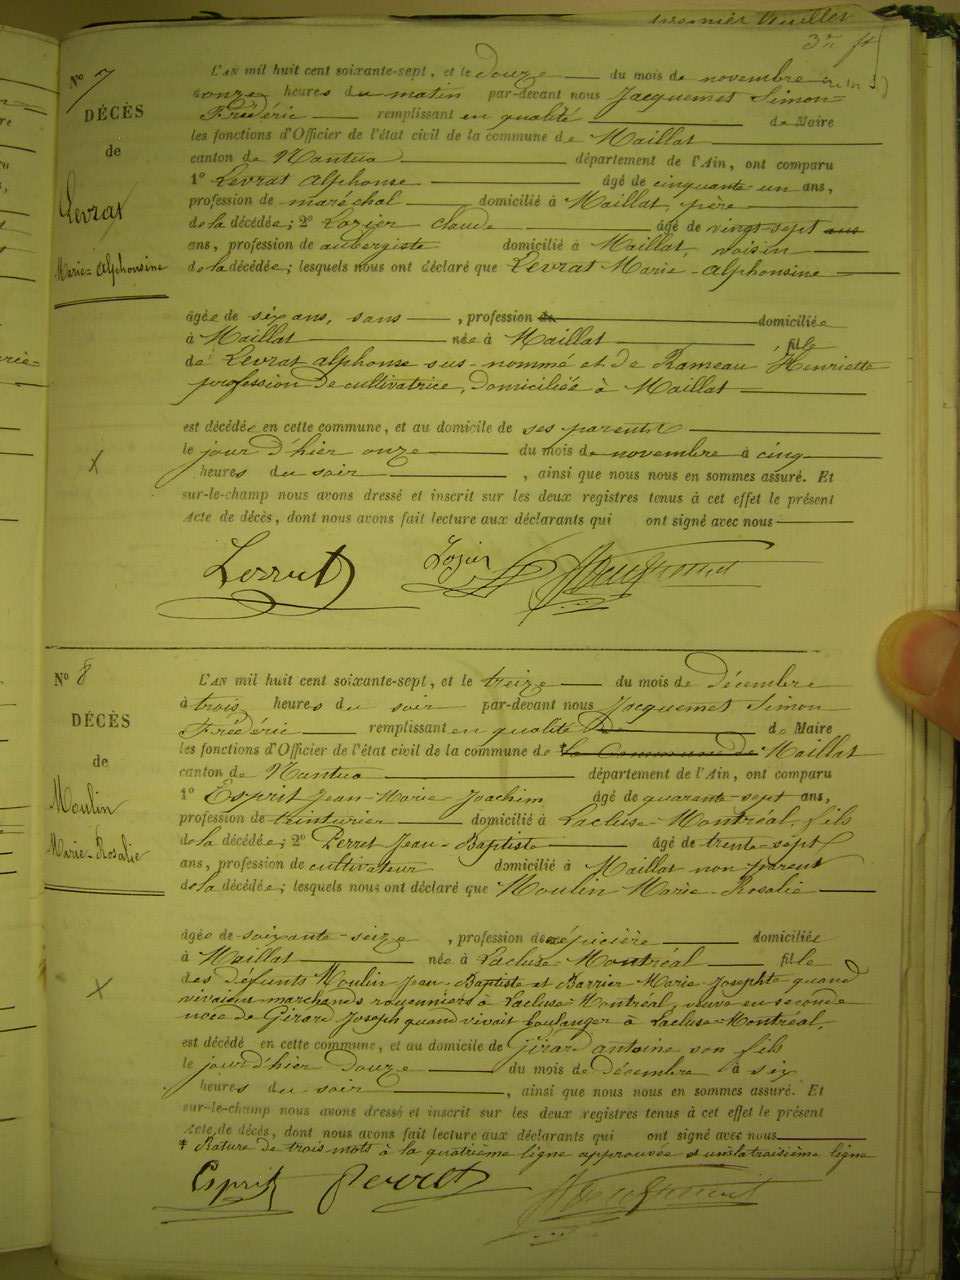 dernier feuillet
3e
N° 7
DÉCÈS
de
Levrat
Marie-Alphonsine
L'AN mil huit cent soixante-sept, et le douze du mois de novembre
onze heures du matin par-devant nous Jacquemet Simon-
Frédéric remplissant en qualité de Maire
les fonctions d'Officier de l'état civil de la commune de Maillat
canton de Nantua département de l'Ain, ont comparu
1° Levrat Alphonse âgé de cinquante un ans,
profession de maréchal domicilié à Maillat, père
de la décédée; 2° Lozier Claude âgé de vingt-sept ans
ans, profession de aubergiste domicilié à Maillat, voisin
de la décédée; lesquels nous ont déclaré que Levrat Marie-Alphonsine
âgée de six ans, sans , profession de domiciliée
à Maillat née à Maillat fille
de Levrat Alphonse sus-nommé et de Rameau Henriette
profession de cultivatrice, domiciliée à Maillat
est décédée en cette commune, et au domicile de ses parents
le jour d'hier onze du mois de novembre à cinq
heures du soir , ainsi que nous nous en sommes assuré. Et
sur-le-champ nous avons dressé et inscrit sur les deux registres tenus à cet effet le présent
Acte de décès, dont nous avons fait lecture aux déclarants qui ont signé avec nous
X
Levrat Lozier Jacquemet
N° 8
DÉCÈS
de
Moulin
Marie-Rosalie
L'AN mil huit cent soixante-sept, et le treize du mois de décembre
à trois heures du soir par-devant nous Jacquemet Simon
Frédéric remplissant en qualité de de Maire
les fonctions d'Officier de l'état civil de la commune de * la Commune de Maillat
canton de Nantua département de l'Ain, ont comparu
1° Esprit Jean-Marie Joachim âgé de quarante-sept ans,
profession de teinturier domicilié à Lacluse-Montréal, fils
de la décédée; 2° Perret Jean-Baptiste âgé de trente-sept
ans, profession de cultivateur domicilié à Maillat non parent
de la décédée; lesquels nous ont déclaré que Moulin Marie-Rosalie
âgée de soixante-seize , profession de épicière domiciliée
à Maillat née à Lacluse-Montréal fille
des défunts Moulin Jean-Baptiste et Barrier Marie Josephte quand
vivaient marchands rouenniers à Lacluse-Montréal, veuve en seconde
noce de Girard Joseph quand vivait boulanger à Lacluse-Montréal,
est décédé en cette commune, et au domicile de Girard Antoine son fils
le jour d'hier douze du mois de décembre à six
heures du soir , ainsi que nous nous en sommes assuré. Et
sur-le-champ nous avons dressé et inscrit sur les deux registres tenus à cet effet le présent
Acte de décès, dont nous avons fait lecture aux déclarants qui ont signé avec nous
X
* Rature de trois mots à la quatrième ligne approuvée et un à la troisième ligne
Esprit Perret Jacquemet